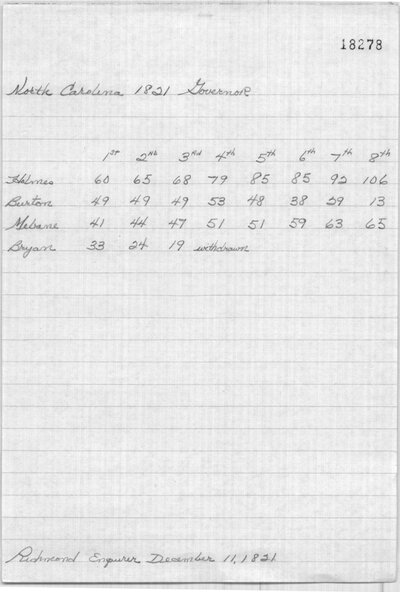 18278
North Carolina 1821 Governor
1st 2nd 3rd 4th 5th 6th 7th 8th
Holmes 60 65 68 79 85 85 92 106
Burton 49 49 49 53 48 38 29 13
Mebane 41 44 47 51 51 59 63 65
Bryan 33 24 19 withdrawn
Richmond Enquirer December 11, 1821